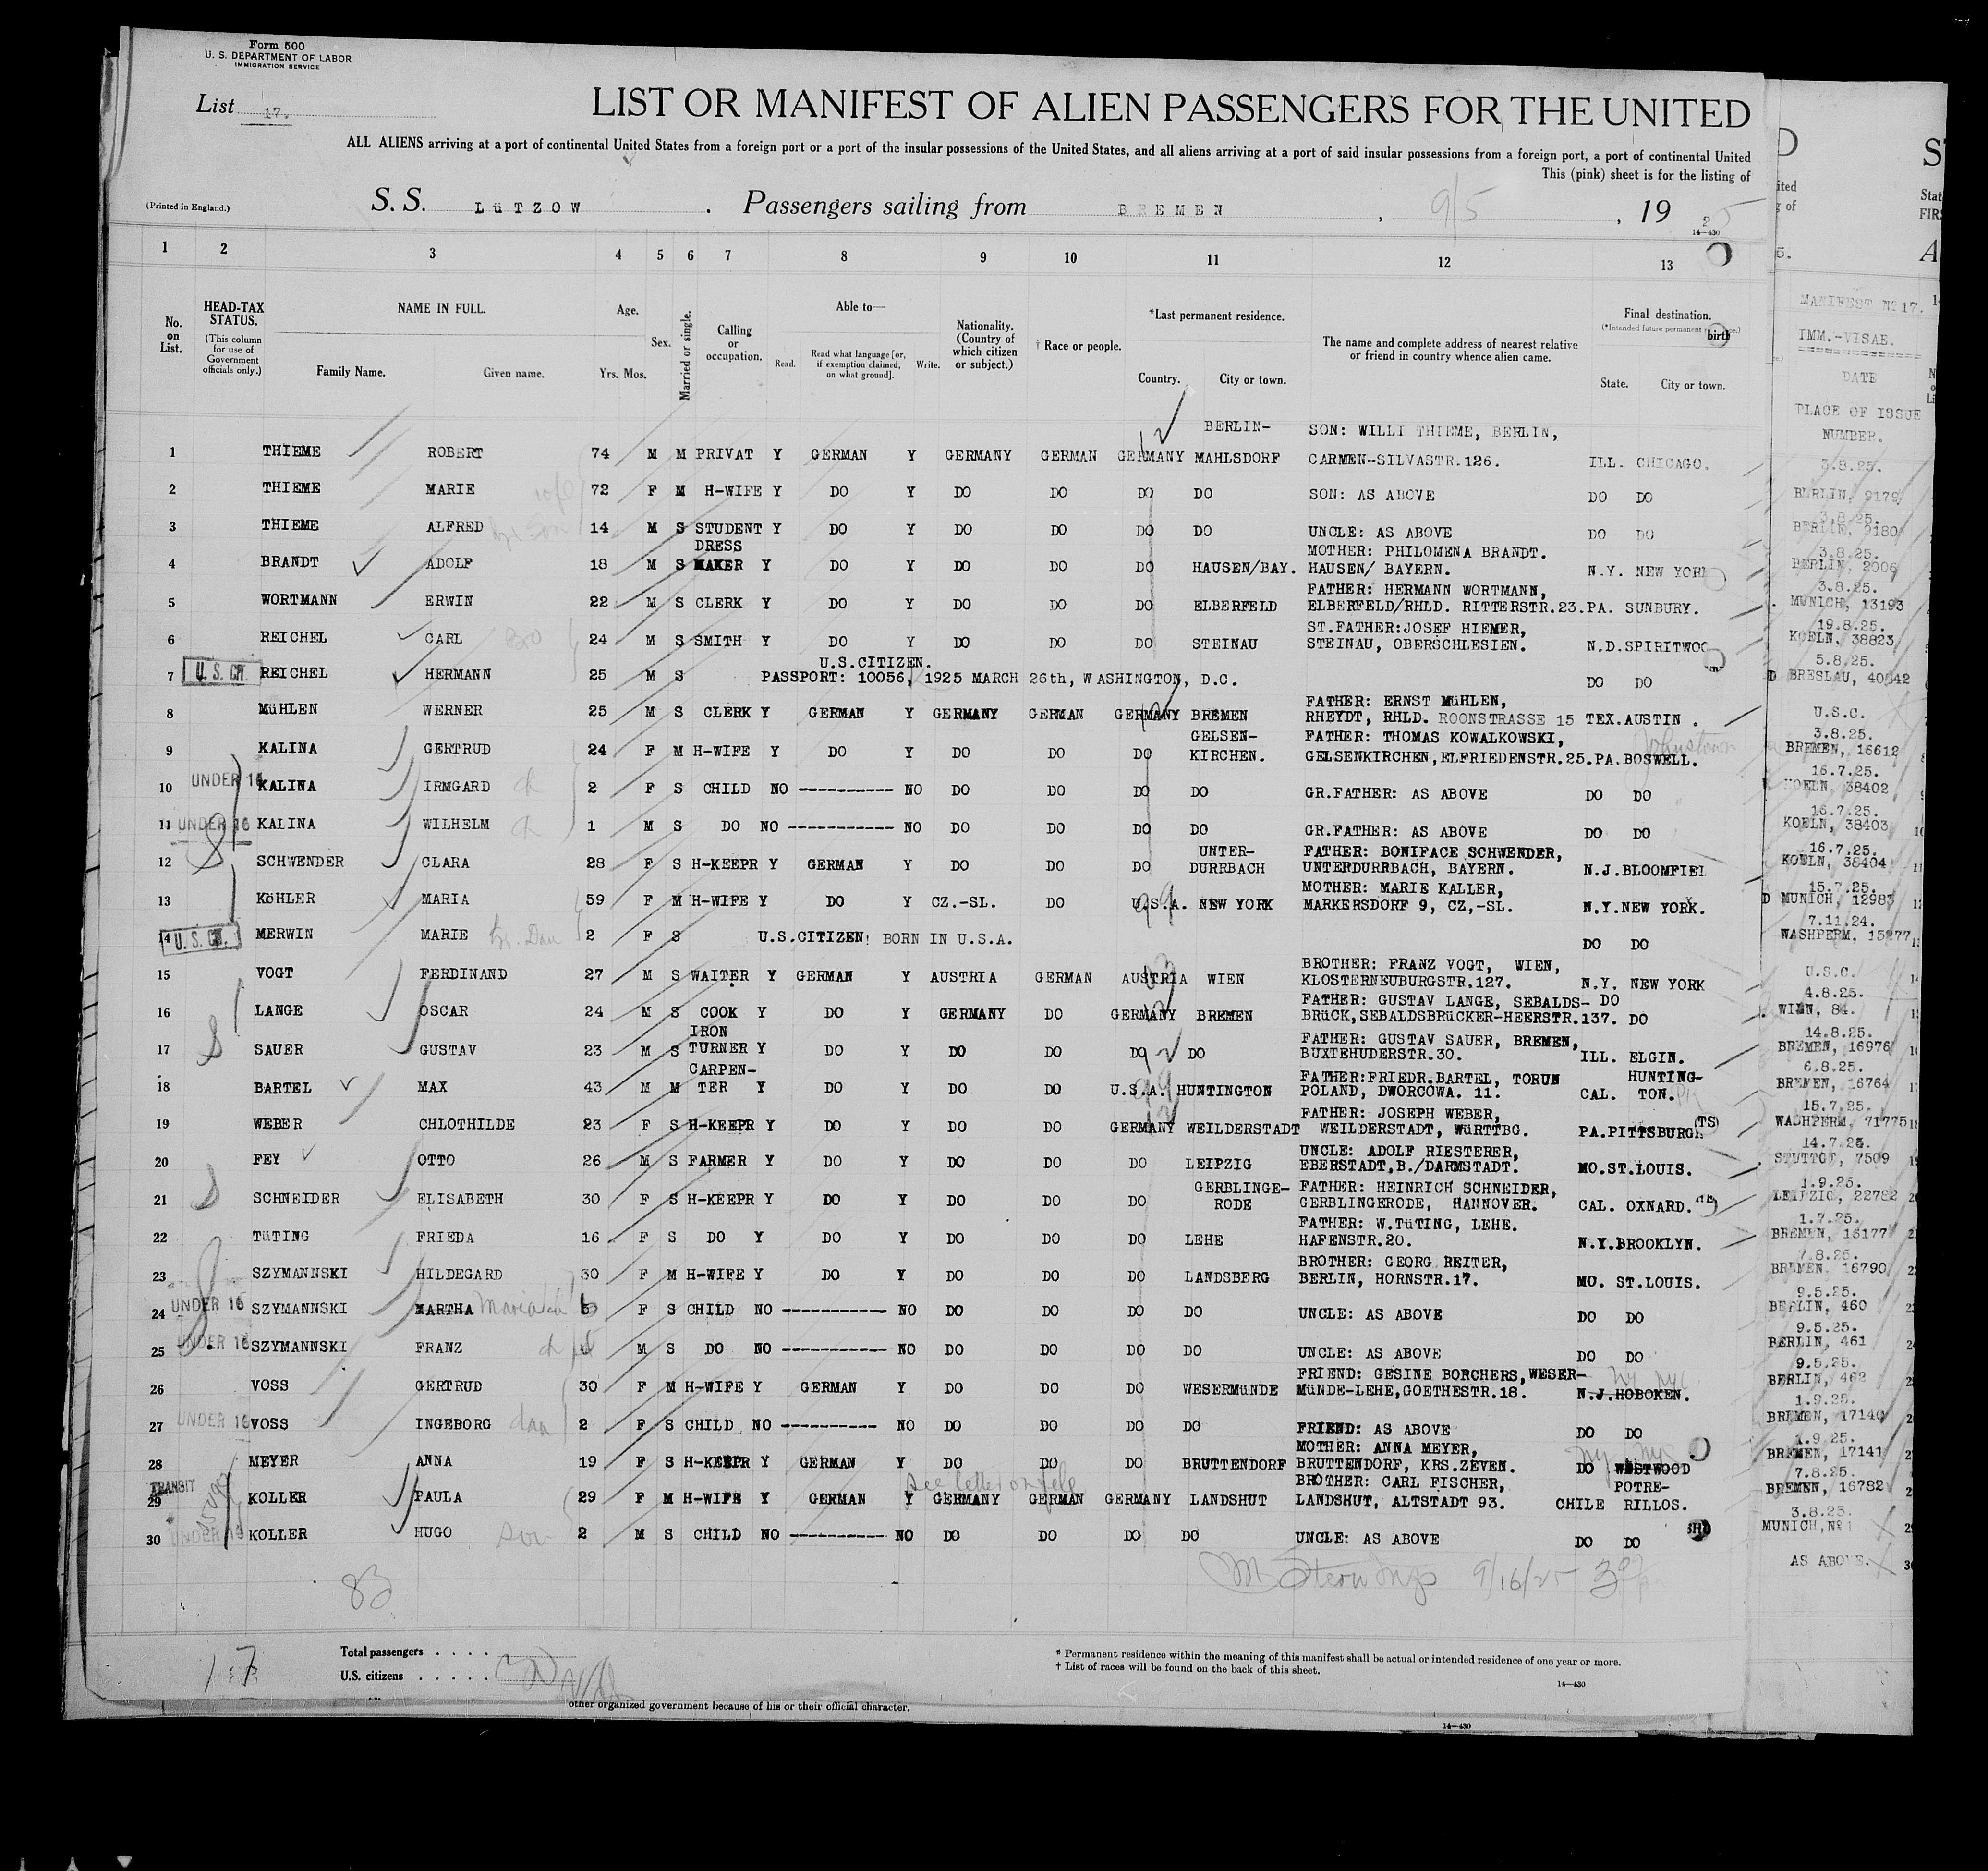 Form 500
U. S. DEPARTMENT OF LABOR
IMMIGRATION SERVICE
List 17.
LIST OR MANIFEST OF ALIEN PASSENGERS FOR THE UNITED
ALL ALIENS arriving at a port of continental United States from a foreign port or a port of the insular possessions of the United States, and all aliens arriving at a port of said insular possessions from a foreign port, a port of continental United
This (pink) sheet is for the listing of
(Printed in England.)
S. S. LüTZOW . Passengers sailing from BREMEN , 9/5 , 19 25
14—430
1 2 3 4 5 6 7 8 9 10 11 12 13
No. on List.
HEAD-TAX STATUS.
(This column for use of Government officials only.)
NAME IN FULL.
Family Name. Given name.
Age.
Yrs. Mos.
Sex.
Married or single.
Calling or occupation.
Able to—
Read. Read what language [or, if exemption claimed, on what ground]. Write.
Nationality. (Country of which citizen or subject.)
† Race or people.
*Last permanent residence.
Country. City or town.
The name and complete address of nearest relative or friend in country whence alien came.
Final destination.
(*Intended future permanent
State. City or town.
MANIFEST No 17.
IMM.-VISAE.
DATE
PLACE OF ISSUE
NUMBER.
BERLIN- SON: WILLI THIEME, BERLIN,
1 THIEME ROBERT 74 M M PRIVAT Y GERMAN Y GERMANY GERMAN GERMANY MAHLSDORF CARMEN-SILVASTR.126. ILL. CHICAGO.
3.8.25.
2 THIEME MARIE 72 F M H-WIFE Y DO Y DO DO DO DO SON: AS ABOVE DO DO
BERLIN, 9179
3.8.25.
3 THIEME ALFRED 14 M S STUDENT Y DO Y DO DO DO DO UNCLE: AS ABOVE DO DO
BERLIN, 9180
3.8.25.
DRESS MOTHER: PHILOMENA BRANDT.
4 BRANDT ADOLF 18 M S MAKER Y DO Y DO DO DO HAUSEN/BAY. HAUSEN/ BAYERN. N.Y. NEW YORK
BERLIN, 2006
3.8.25.
FATHER: HERMANN WORTMANN,
5 WORTMANN ERWIN 22 M S CLERK Y DO Y DO DO DO ELBERFELD ELBERFELD/RHLD. RITTERSTR.23. PA. SUNBURY.
MUNICH, 13193
19.8.25.
ST.FATHER:JOSEF HIEMER,
6 REICHEL CARL Bro 24 M S SMITH Y DO Y DO DO DO STEINAU STEINAU, OBERSCHLESIEN. N.D.SPIRITWOO
KOELN, 38823
5.8.25.
U.S.CITIZEN.
7 U.S. CIT. REICHEL HERMANN 25 M S PASSPORT: 10056, 1925 MARCH 26th, WASHINGTON, D.C. DO DO
D BRESLAU, 40642
FATHER: ERNST MüHLEN,
8 MüHLEN WERNER 25 M S CLERK Y GERMAN Y GERMANY GERMAN GERMANY BREMEN RHEYDT, RHLD. ROONSTRASSE 15 TEX.AUSTIN .
U.S.C.
3.8.25.
GELSEN- FATHER: THOMAS KOWALKOWSKI, Johnstown
9 KALINA GERTRUD 24 F M H-WIFE Y DO Y DO DO DO KIRCHEN. GELSENKIRCHEN,ELFRIEDENSTR.25. PA.BOSWELL.
BREMEN, 16612
16.7.25.
10 UNDER 16 KALINA IRMGARD ch 2 F S CHILD NO ---------- NO DO DO DO DO GR.FATHER: AS ABOVE DO DO
KOELN, 38402
16.7.25.
11 UNDER 16 KALINA WILHELM ch 1 M S DO NO ---------- NO DO DO DO DO GR.FATHER: AS ABOVE DO DO
KOELN, 38403
16.7.25.
UNTER- FATHER: BONIFACE SCHWENDER,
12 SCHWENDER CLARA 28 F S H-KEEPR Y GERMAN Y DO DO DO DURRBACH UNTERDURRBACH, BAYERN. N.J.BLOOMFIEL
KOELN, 38404
15.7.25.
MOTHER: MARIE KALLER,
13 KöHLER MARIA 59 F M H-WIFE Y DO Y CZ.-SL. DO U.S.A. NEW YORK MARKERSDORF 9, CZ,-SL. N.Y.NEW YORK.
D MUNICH, 12983
7.11.24.
14 U.S. CIT. MERWIN MARIE 2 F S U.S.CITIZEN! BORN IN U.S.A. DO DO
WASHPERM, 15277
BROTHER: FRANZ VOGT, WIEN,
15 VOGT FERDINAND 27 M S WAITER Y GERMAN Y AUSTRIA GERMAN AUSTRIA WIEN KLOSTERNEUBURGSTR.127. N.Y. NEW YORK
U.S.C.
4.8.25.
FATHER: GUSTAV LANGE, SEBALDS- DO
16 LANGE OSCAR 24 M S COOK Y DO Y GERMANY DO GERMANY BREMEN BRüCK,SEBALDSBRüCKER-HEERSTR.137. DO
WIEN, 84.
14.8.25.
IRON FATHER: GUSTAV SAUER, BREMEN,
17 SAUER GUSTAV 23 M S TURNER Y DO Y DO DO DO DO BUXTEHUDERSTR.30. ILL. ELGIN.
BREMEN, 16976
6.8.25.
CARPEN- FATHER:FRIEDR.BARTEL, TORUN HUNTING-
18 BARTEL MAX 43 M M TER Y DO Y DO DO U.S.A. HUNTINGTON POLAND, DWORCOWA. 11. CAL. TON.
BREMEN, 16764
15.7.25.
FATHER: JOSEPH WEBER,
19 WEBER CHLOTHILDE 23 F S H-KEEPR Y DO Y DO DO GERMANY WEILDERSTADT WEILDERSTADT, WüRTTBG. PA.PITTSBURGH
WASHPERM, 71775
14.7.25.
UNCLE: ADOLF RIESTERER,
20 FEY OTTO 26 M S FARMER Y DO Y DO DO DO LEIPZIG EBERSTADT,B./DARMSTADT. MO.ST.LOUIS.
STUTTGT, 7509
1.9.25.
GERBLINGE- FATHER: HEINRICH SCHNEIDER,
21 SCHNEIDER ELISABETH 30 F S H-KEEPR Y DO Y DO DO DO RODE GERBLINGERODE, HANNOVER. CAL. OXNARD.
LEIPZIG, 22782
1.7.25.
FATHER: W.TüTING, LEHE.
22 TüTING FRIEDA 16 F S DO Y DO Y DO DO DO LEHE HAFENSTR.20. N.Y.BROOKLYN.
BREMEN, 16177
7.8.25.
BROTHER: GEORG REITER,
23 SZYMANNSKI HILDEGARD 30 F M H-WIFE Y DO Y DO DO DO LANDSBERG BERLIN, HORNSTR.17. MO. ST.LOUIS.
BREMEN, 16790
9.5.25.
24 UNDER 16 SZYMANNSKI MARTHA F S CHILD NO ---------- NO DO DO DO DO UNCLE: AS ABOVE DO DO
BERLIN, 460
9.5.25.
25 UNDER 16 SZYMANNSKI FRANZ ch M S DO NO ---------- NO DO DO DO DO UNCLE: AS ABOVE DO DO
BERLIN, 461
9.5.25.
FRIEND: GESINE BORCHERS,WESER- NY NYC
26 VOSS GERTRUD 30 F M H-WIFE Y GERMAN Y DO DO DO WESERMüNDE MüNDE-LEHE,GOETHESTR.18. N.J.HOBOKEN.
BERLIN, 462
1.9.25.
27 UNDER 16 VOSS INGEBORG dau 2 F S CHILD NO ---------- NO DO DO DO DO FRIEND: AS ABOVE DO DO
BREMEN, 17140
1.9.25.
MOTHER: ANNA MEYER, NY NYC
28 MEYER ANNA 19 F S H-KEEPR Y GERMAN Y DO DO DO BRUTTENDORF BRUTTENDORF, KRS.ZEVEN. DO WESTWOOD
BREMEN, 17141
7.8.25.
see letter on file
BROTHER: CARL FISCHER, POTRE-
29 TRANSIT KOLLER PAULA 29 F M H-WIFE Y GERMAN Y GERMANY GERMAN GERMANY LANDSHUT LANDSHUT, ALTSTADT 93. CHILE RILLOS.
BREMEN, 16782
3.8.25.
30 UNDER 16 KOLLER HUGO son 2 M S CHILD NO ---------- NO DO DO DO DO UNCLE: AS ABOVE DO DO
MUNICH, No 1
AS ABOVE.
83
M Stern Insp 9/16/25
17
Total passengers . . . .
U.S. citizens . . . . .
* Permanent residence within the meaning of this manifest shall be actual or intended residence of one year or more.
† List of races will be found on the back of this sheet.
14—430
other organized government because of his or their official character.
14—430